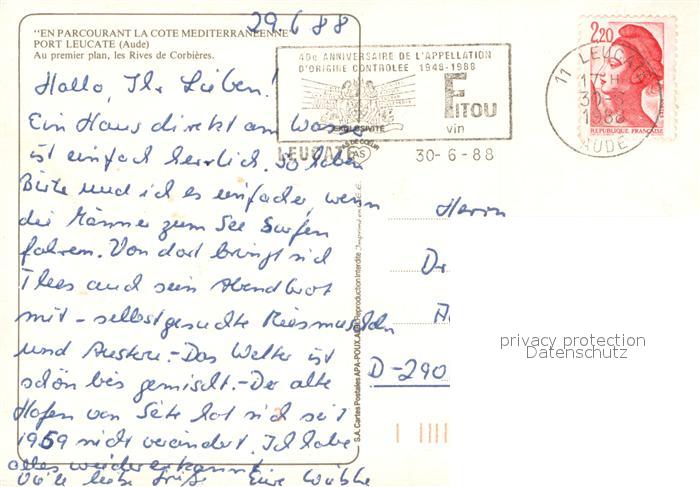 29.6.88
"EN PARCOURANT LA COTE MEDITERRANEENNE"
PORT LEUCATE (Aude)
Au premier plan, les Rives de Corbières.
40e ANNIVERSAIRE DE L'APPELLATION
D'ORIGINE CONTROLEE 1948-1988
FITOU
vin
EXCLUSIVITE
LEUCATE
30-6-88
2,20
11 LEUCATE
17H
30-6
1988
AUDE
REPUBLIQUE FRANÇAISE
Hallo, Ihr Lieben!
Ein Haus direkt am Wasser
ist einfach herrlich. So haben
Birte und ich es einfacher, wenn
die Männer zum See Surfen
fahren. Von dort bringt sich
Thees auch sein Abendbrot
mit - selbstgesuchte Miesmuscheln
und Austern. - Das Wetter ist
schön bis gemischt. - Der alte
Hafen von Sète hat sich seit
1959 nicht verändert. Ich habe
alles wiedererkannt!
Viele liebe Grüße Eure Wiebke
S.A. Cartes Postales APA-POUX, ALBI Reproduction interdite Imprimé en C.E.E.
Herrn
Dr
D-290
privacy protection
Datenschutz